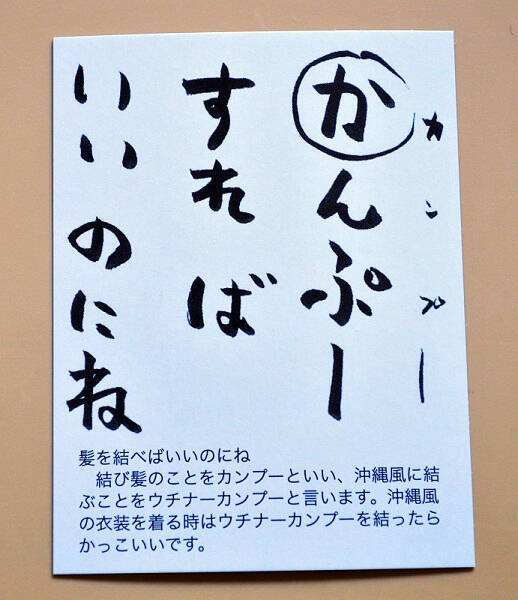 かんぷー
カンプー
すれば
いいのにね
髪を結べばいいのにね
　結び髪のことをカンプーといい、沖縄風に結
ぶことをウチナーカンプーと言います。沖縄風
の衣装を着る時はウチナーカンプーを結ったら
かっこいいです。